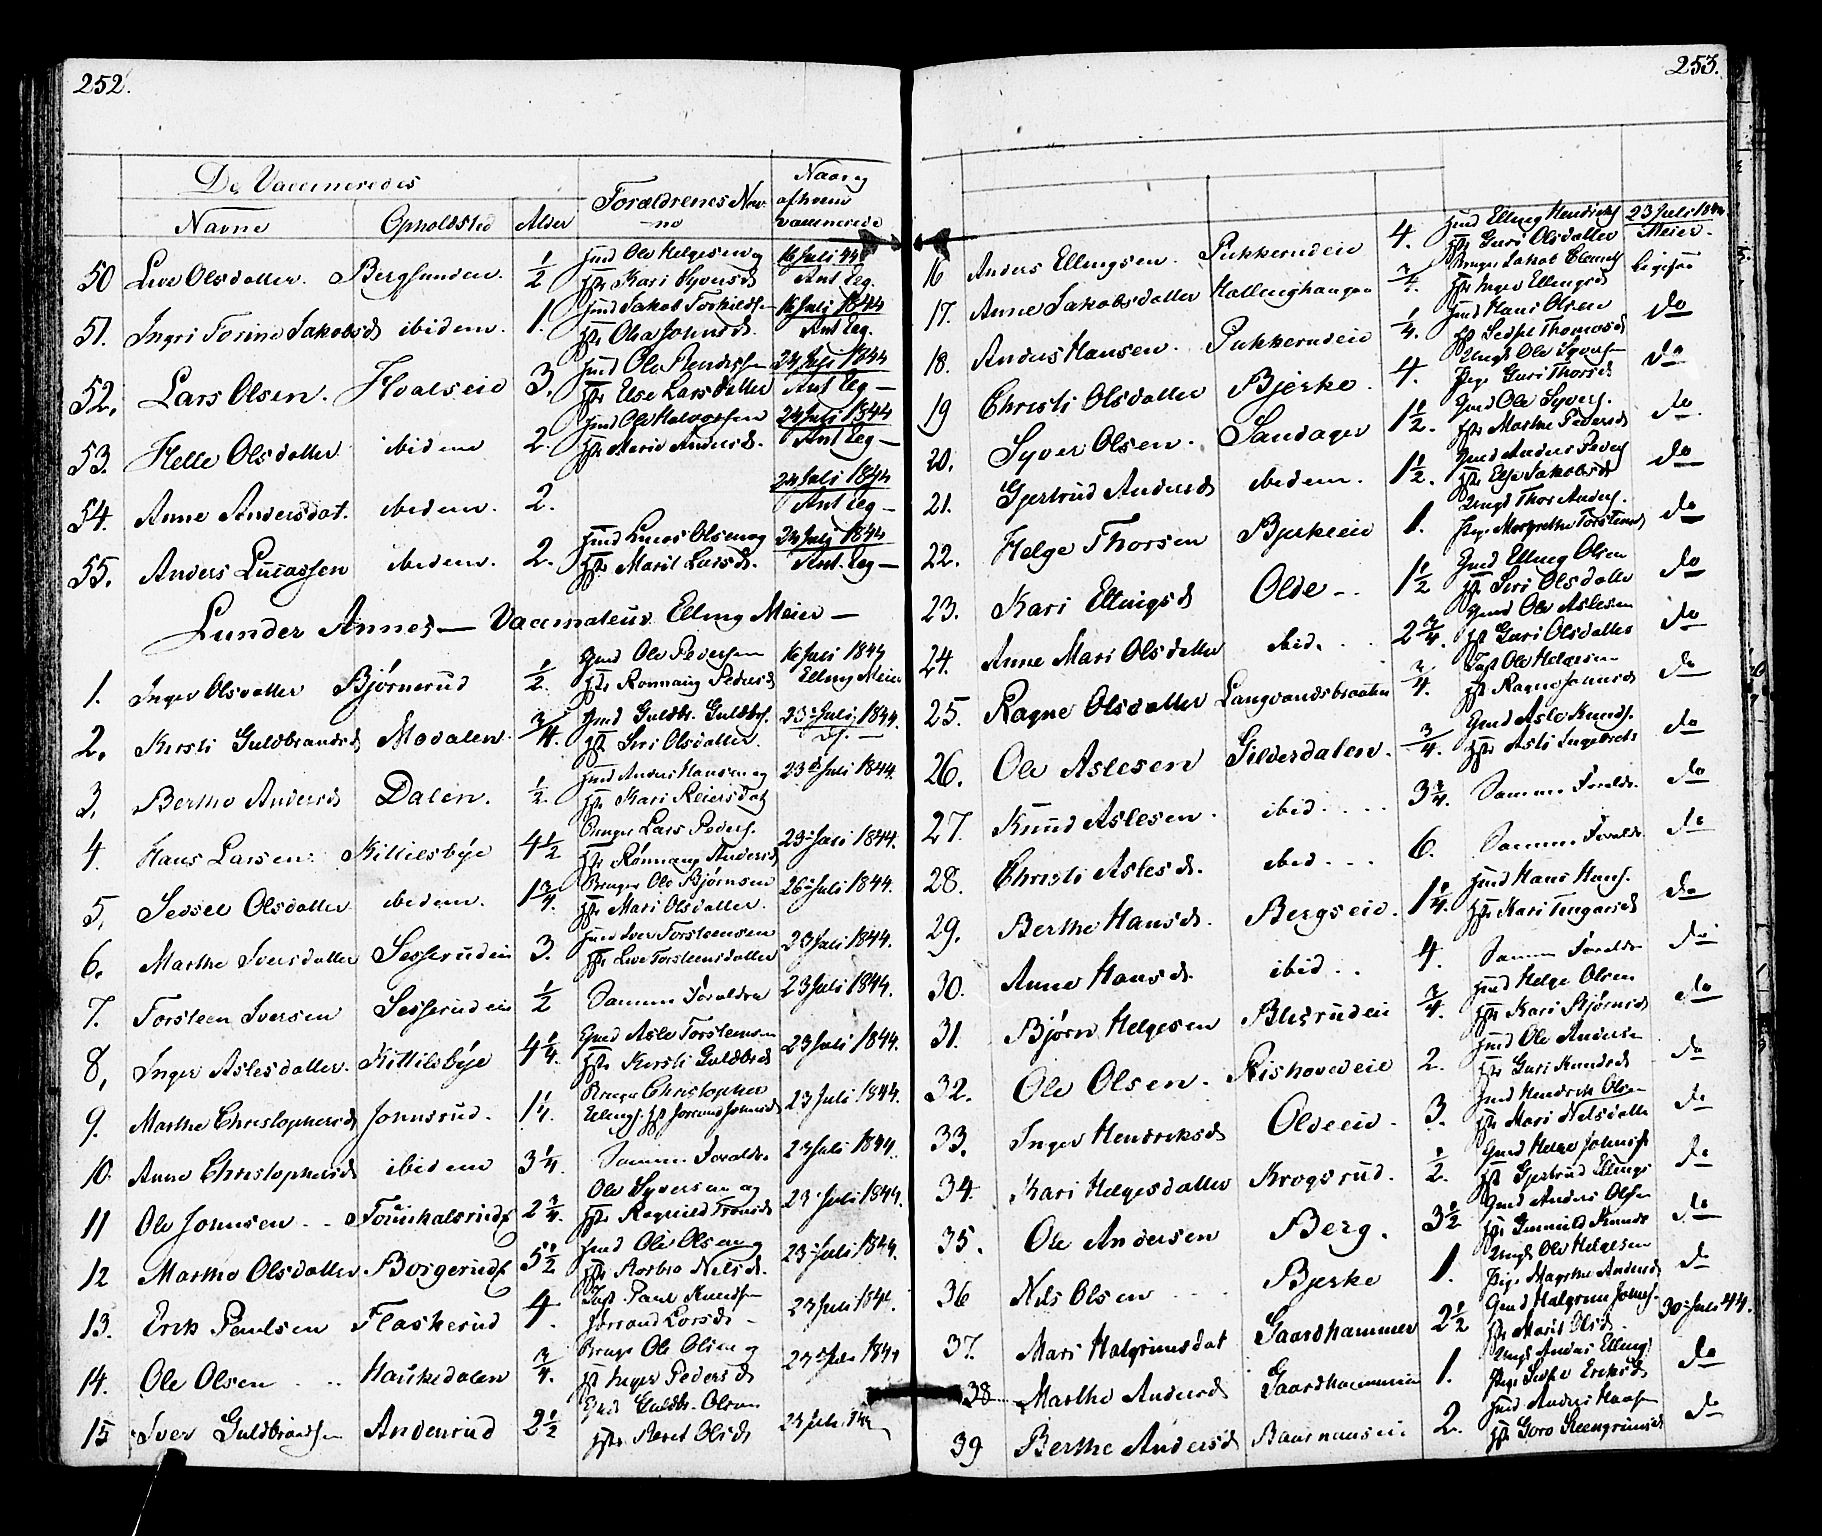 252.
De Vaccineredes
Navne Opholdsted Alder Forældrenes Nav-ne Naar og af hvem vaccinerede
50 Live Olsdatter. Bergsunden. 1/2 Huusmd Ole Helgesen og Hst Kari Syversd 16 Juli 44 Ant Eeg.
51. Ingri Torine Jakobsd ibidem. 1. Jakob Torkilds- Hst Olea Johnsd. 16 Juli 1844 Ant Eeg.
52. Lars Olsen. Hvalseie 3. Ole Hst Else Larsdatter 24 Juli 1844 Ant Eeg —
53. Helle Olsdatter ibidem 2. Ole Halvorsen Hst Marie Andersd. 24 Juli 1844 Ant Eeg —
54. Anne Andersdat. ibidem. 2. 24 Juli 1844 Ant Eeg —
55. Anders Lucassen ibidem. 2. Lucas Olsen og Hst Marit Larsd. 24 Juli 1844 Ant. Eeg —
Lunder Annex — Vaccinateur Elling Meier —
1. Inger Olsdatter Bjørnerud 1/2. Gmd Ole Pedersen Hst Rønnaug Pedersd 16 Juli 1844 Elling Meier
2. Kirsti Guldbrandsd Modalen. 3/4. Gmd Guldbr. Guldbs. Hst Siri Olsdatter. 23 Juli 1844.
3. Berthe Andersd Dalen. 1/2. Anders Hansen og Hst Kari Reiersdat 23 Juli 1844.
4 Hans Larsen. Kittilsbye 4 1/2 Bruger Lars Peders. Hst Rønnaug Andersd 23 Juli 1844.
5. Sessel Olsdatter ibidem. 1 3/4. Bruger Ole Bjørnsen Hst Mari Olsdatter. 26 Juli 1844.
6. Marthe Iversdatter Sesserudeie 3. Iver Torsteensen Hst Live Torsteensdatter 23 Juli 1844.
7. Torsteen Iversen Sesserudeie 1/2 Samme Forældre 23 Juli 1844.
8. Inger Aslesdatter. Kittilsbye 4 1/4. Gmd Asle Torsteensen Hst Kirsti Guldbrd 23 Juli 1844.
9. Marthe Christophersd Johnsrud. 1 1/4. Bruger Christopher Ellings. Hst Jorand Johnsd 23 Juli 1844.
10. Anne Christophersd ibidem 3 1/4. Samme Forældre 23 Juli 1844.
11 Ole Johnsen . . 2 3/4. Ole Syversen og Hst Ragnild 23 Juli 1844.
12 Marthe Olsdatter. Borgerud 5 1/2 Ole Olsen og Hst Barbro Nilsd. 23 Juli 1844.
13. Erik Paulsen Flaskerud 4. Paul Knuds- Jørrand Larsd - 23 Juli 1844
14. Ole Olsen . . Haukedalen 3/4. Bruger Ole Olsen og Hst Inger Pedersd 23 Juli 1844
15 Iver Guldbrands Anderud 2 1/2 Gmd Guldbr. Olsen Hst Beret Olsd 23 Juli 1844
253.
16 Anders Ellingsen. Pukkerudeie 4. Elling Hendriks Hst Guri Olsdatter 23 Juli 1844 Meier.
17. Anne Jakobsdatter Hallinghaugen 3/4. Bruger Jakob Hst Inger Ellingsd Ligesaa
18. Anders Hansen. Pukkerudeie 1/4. Hans Olsen Hst Thomasd do
19 Christi Olsdatter Bjerke. 4. Ungk Ole Syvers- Pige Guri Thorsd do
20. Syver Olsen. Sandager 1 1/2. Gmd Ole Syvers. Hst Marthe Pedersd do.
21. Gjertrud Andersd ibidem. 1 1/2. Gmd Anders Peders Hst Else Jakobsd do
22. Helge Thorsen Bjerkeeie 1. Ungk Thor Anders. Pige Margrethe Torsteensd do
23. Kari Ellingsd Olde . . 1 1/2 Gmd Elling Olsen Hst Siri Olsdatter do
24. Anne Mari Olsdatter ibid. . 2 3/4. Gmd Ole Aslesen Hst Guri Olsdatter do
25. Ragne Olsdatter Langvandsbraaten 3/4. Ole Helgesen Hst Ragne Johnsd do
26. Ole Aslesen Gilderdalen. 3/4. Gmd Asle Knuds. Hst Asli Ingebretsd do
27. Knud Aslesen. ibid . . . 3 3/4. Samme Forældre do
28. Christi Aslesd. ibid . . . 6. Samme Forældre do
29. Berthe Hansd. Bergseie. 1 1/4. Hans Hans. Hst Kari do
30. Anne Hansd. ibid . . 4. Samme Forældre do
31. Bjørn Helgesen 3/4. Helge Olsen Hst Kari Bjørnsd do
32. Ole Olsen. Rishovedeie 2. Ole Andersen Hst Guri Knudsd do
33. Inger Hendriksd Oldeeie. 3. Hendrik Olsen Hst Mari Nelsdatter do
34. Kari Helgesdatter Krogsrud. 1/2. Gmd Helge Johns Hst Gjertrud Ellings do
35. Ole Andersen Berg. 3 1/2 Gmd Anders Olsen Hst Gunnild Knuds do
36 Nils Olsen Bjerke 1. Ungk Ole Helgesen Pige Margrethe Andersd do
37. Mari Halgrimsdat Gaardhammer 2 1/2 Gmd Halgrim Johns. Hst Marit Olsd. 30 Juli 44.
38 Marthe Andersd Gaardhammereie 1. Ungk Anders Ellings Pige Eriksd do
39 Berthe Andersd 2. Anders Hst Goro Steengrimsd do